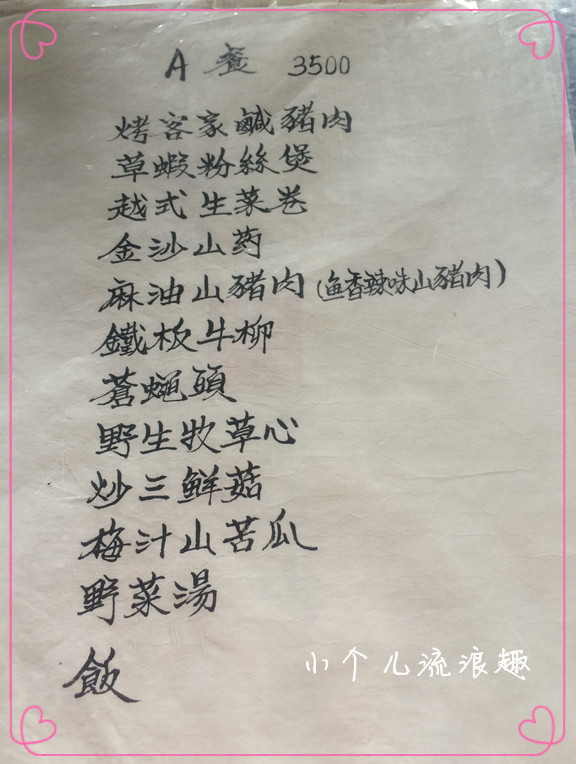 A 餐 3500
烤客家鹹豬肉
草蝦粉絲煲
越式生菜卷
金沙山药
麻油山豬肉(鱼香辣味山豬肉)
鐵板牛柳
蒼蠅頭
野生牧草心
炒三鲜菇
梅汁山苦瓜
野菜湯
飯
小个儿流浪趣